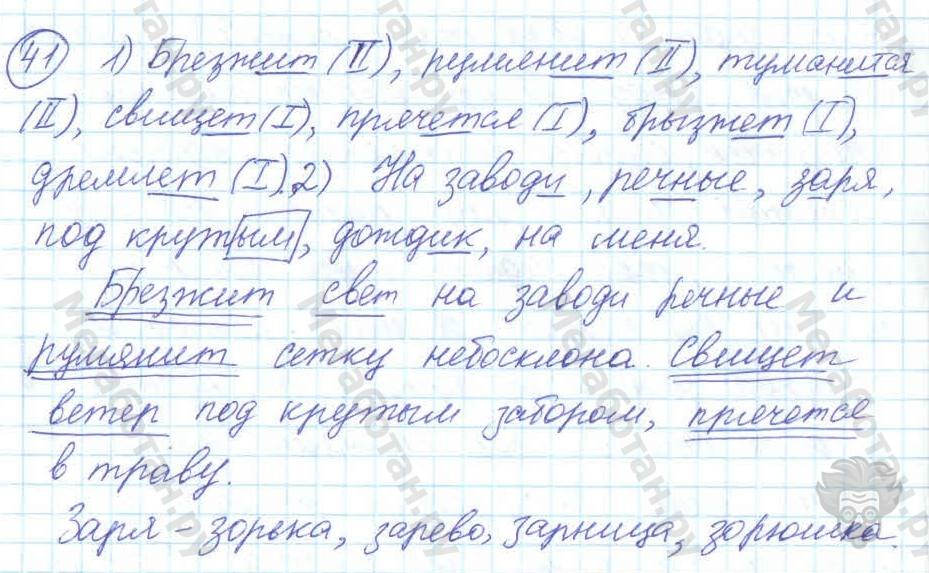 41 1) Брезжит (II), румянит (II), туманится
(II), свищет (I), прячется (I), брызжет (I),
дремлет (I). 2) На заводи, речные, заря,
под крутым, дождик, на меня.
Брезжит свет на заводи речные и
румянит сетку небосклона. Свищет
ветер под крутым забором, прячется
в траву.
Заря – зорька, зарево, зарница, зорюшка.